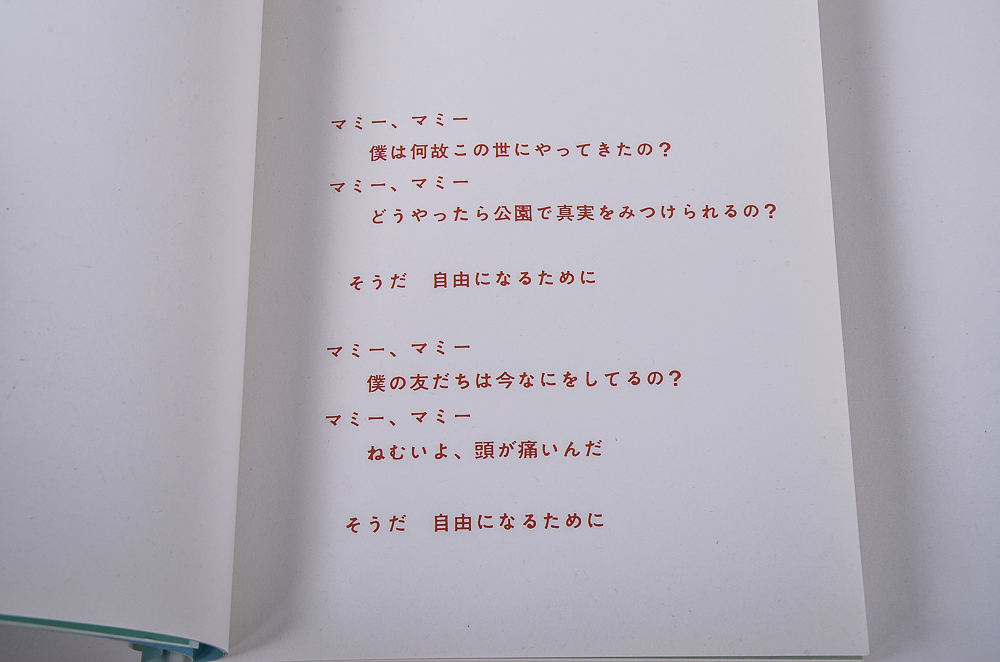 マミー、マミー
僕は何故この世にやってきたの？
マミー、マミー
どうやったら公園で真実をみつけられるの？
そうだ　自由になるために
マミー、マミー
僕の友だちは今なにをしてるの？
マミー、マミー
ねむいよ、頭が痛いんだ
そうだ　自由になるために